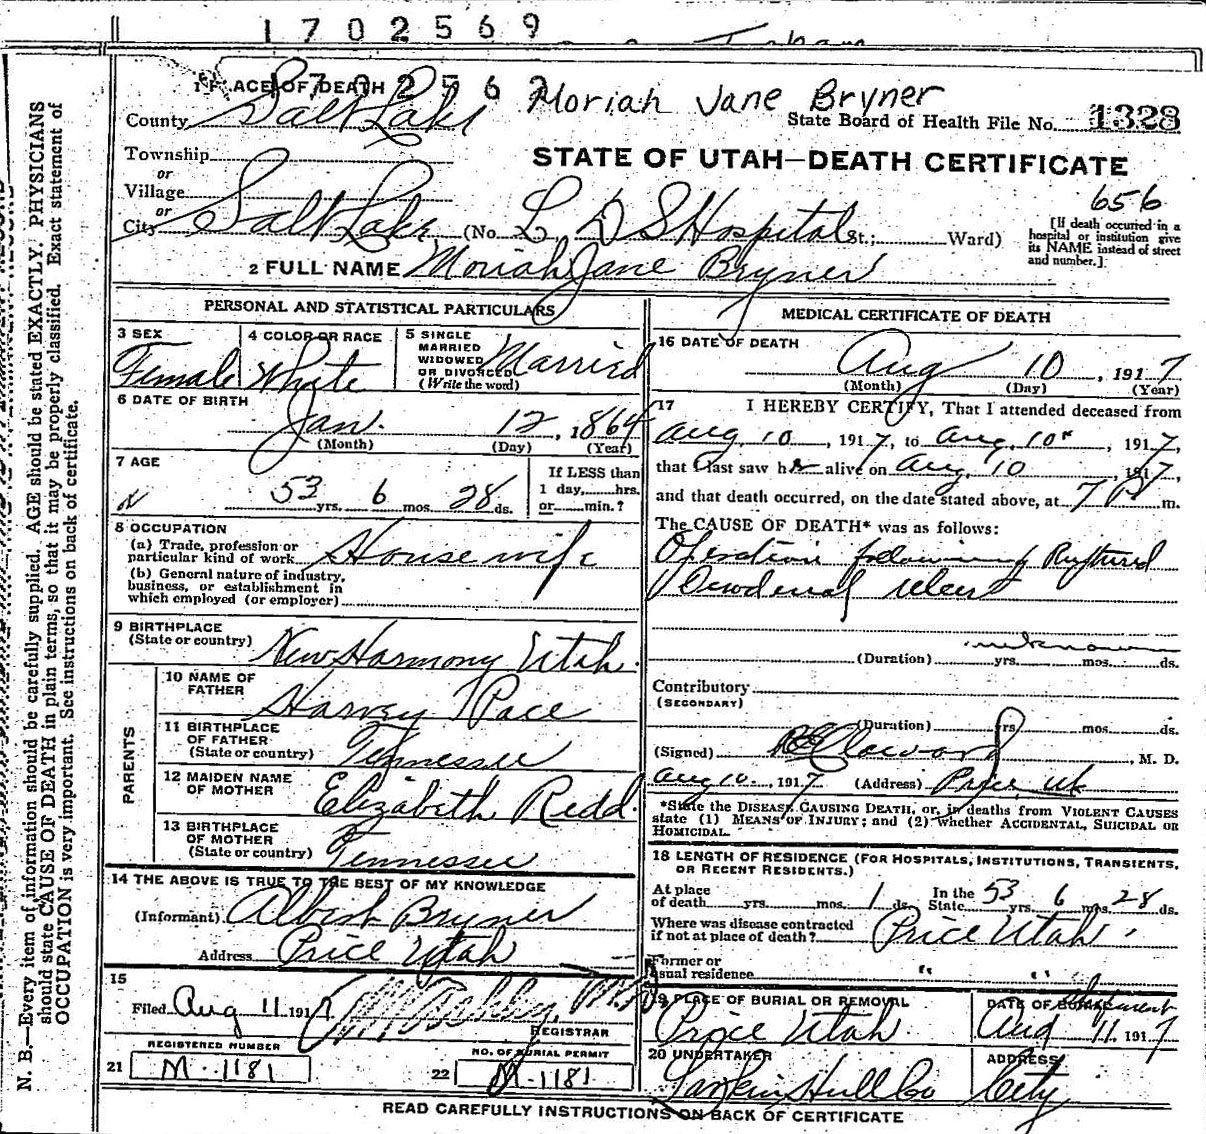 1702569
1 PLACE OF DEATH 1702562 Moriah Jane Bryner
County Salt Lake State Board of Health File No. 1328
Township
or
Village
STATE OF UTAH—DEATH CERTIFICATE
656
or
City Salt Lake (No. L D S Hospital St.; Ward)
[If death occurred in a
hospital or institution give
its NAME instead of street
and number.]
2 FULL NAME Moriah Jane Bryner
PERSONAL AND STATISTICAL PARTICULARS
3 SEX Female
4 COLOR OR RACE White
5 SINGLE
MARRIED
WIDOWED
OR DIVORCED
(Write the word) Married
6 DATE OF BIRTH
Jan. 12, 1864
(Month) (Day) (Year)
7 AGE
53 yrs. 6 mos. 28 ds.
If LESS than
1 day,......hrs.
or......min.?
8 OCCUPATION
(a) Trade, profession or
particular kind of work Housewife
(b) General nature of industry,
business, or establishment in
which employed (or employer)
9 BIRTHPLACE
(State or country) New Harmony Utah.
PARENTS
10 NAME OF
FATHER Harvey Pace
11 BIRTHPLACE
OF FATHER
(State or country) Tennessee
12 MAIDEN NAME
OF MOTHER Elizabeth Redd.
13 BIRTHPLACE
OF MOTHER
(State or country) Tennessee
14 THE ABOVE IS TRUE TO THE BEST OF MY KNOWLEDGE
(Informant) Albert Bryner
Address Price Utah
15
Filed Aug 11 1917
REGISTRAR
REGISTERED NUMBER
21 M-1181
NO. OF BURIAL PERMIT
22 M-1181
MEDICAL CERTIFICATE OF DEATH
16 DATE OF DEATH
Aug 10, 1917
(Month) (Day) (Year)
17 I HEREBY CERTIFY, That I attended deceased from
Aug 10, 1917, to Aug. 10", 1917,
that I last saw her alive on Aug, 10, 1917,
and that death occurred, on the date stated above, at 7 P m.
The CAUSE OF DEATH* was as follows:
Operation following Ruptured
Dewodenal ulcer
unknown
(Duration) yrs. mos. ds.
Contributory
(SECONDARY)
(Duration) yrs. mos. ds.
(Signed) M. D.
Aug 10, 1917 (Address) Price Ut
*State the DISEASE CAUSING DEATH, or, in deaths from VIOLENT CAUSES
state (1) MEANS OF INJURY; and (2) whether ACCIDENTAL, SUICIDAL OR
HOMICIDAL.
18 LENGTH OF RESIDENCE (FOR HOSPITALS, INSTITUTIONS, TRANSIENTS,
OR RECENT RESIDENTS.)
At place
of death yrs. mos. 1 ds. In the
State 53 yrs. 6 mos. 28 ds.
Where was disease contracted
if not at place of death? Price Utah.
Former or
usual residence " "
19 PLACE OF BURIAL OR REMOVAL
Price Utah
DATE OF BURIAL Shipment
Aug 11. 1917
20 UNDERTAKER
Larkin Hull Co
ADDRESS
City
READ CAREFULLY INSTRUCTIONS ON BACK OF CERTIFICATE
N. B.—Every item of information should be carefully supplied. AGE should be stated EXACTLY. PHYSICIANS
should state CAUSE OF DEATH in plain terms, so that it may be properly classified. Exact statement of
OCCUPATION is very important. See instructions on back of certificate.